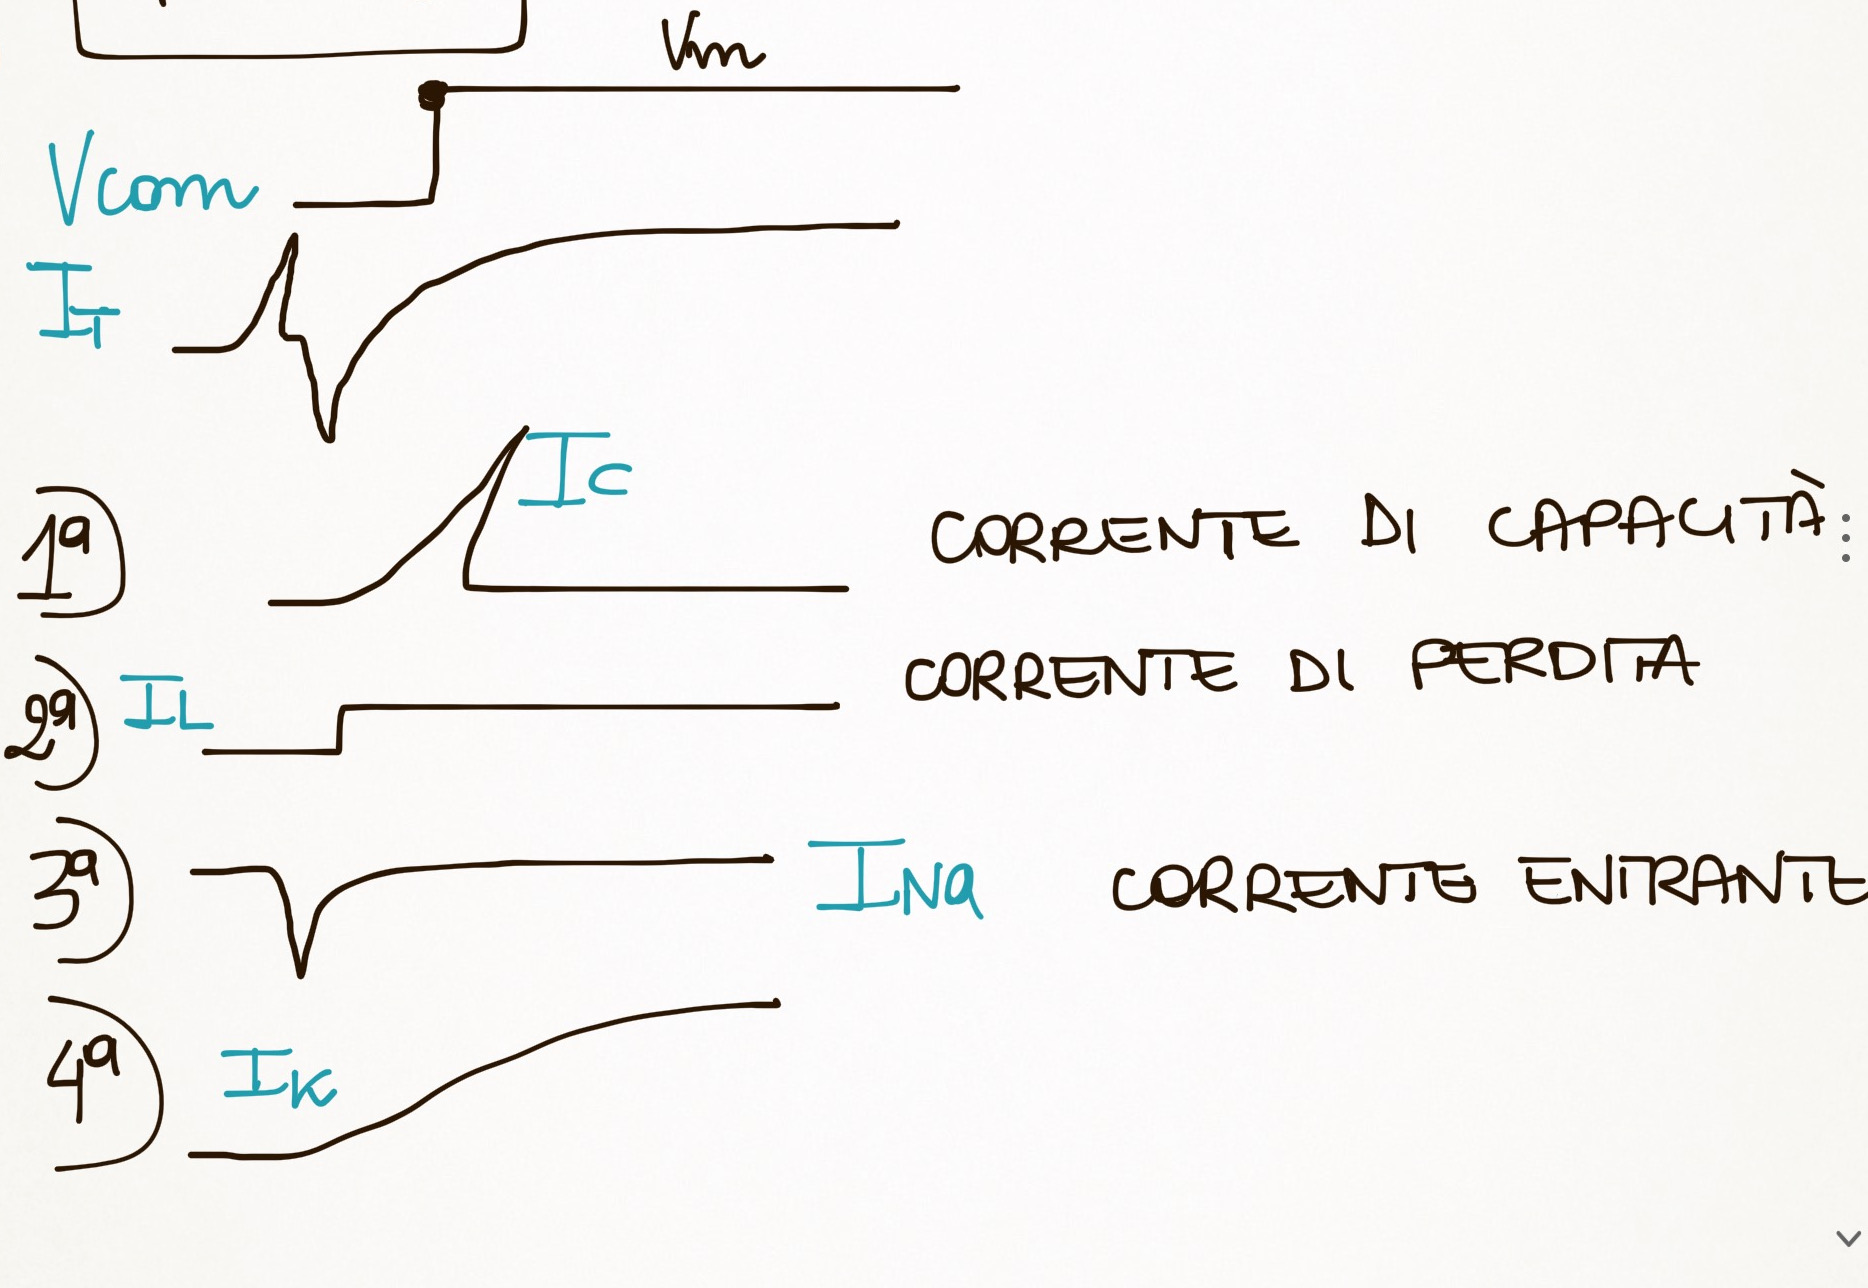 Vm
Vcom
IT
IC
1ª) CORRENTE DI CAPACITÀ
2ª) IL CORRENTE DI PERDITA
3ª) INa CORRENTE ENTRANTE
4ª) IK